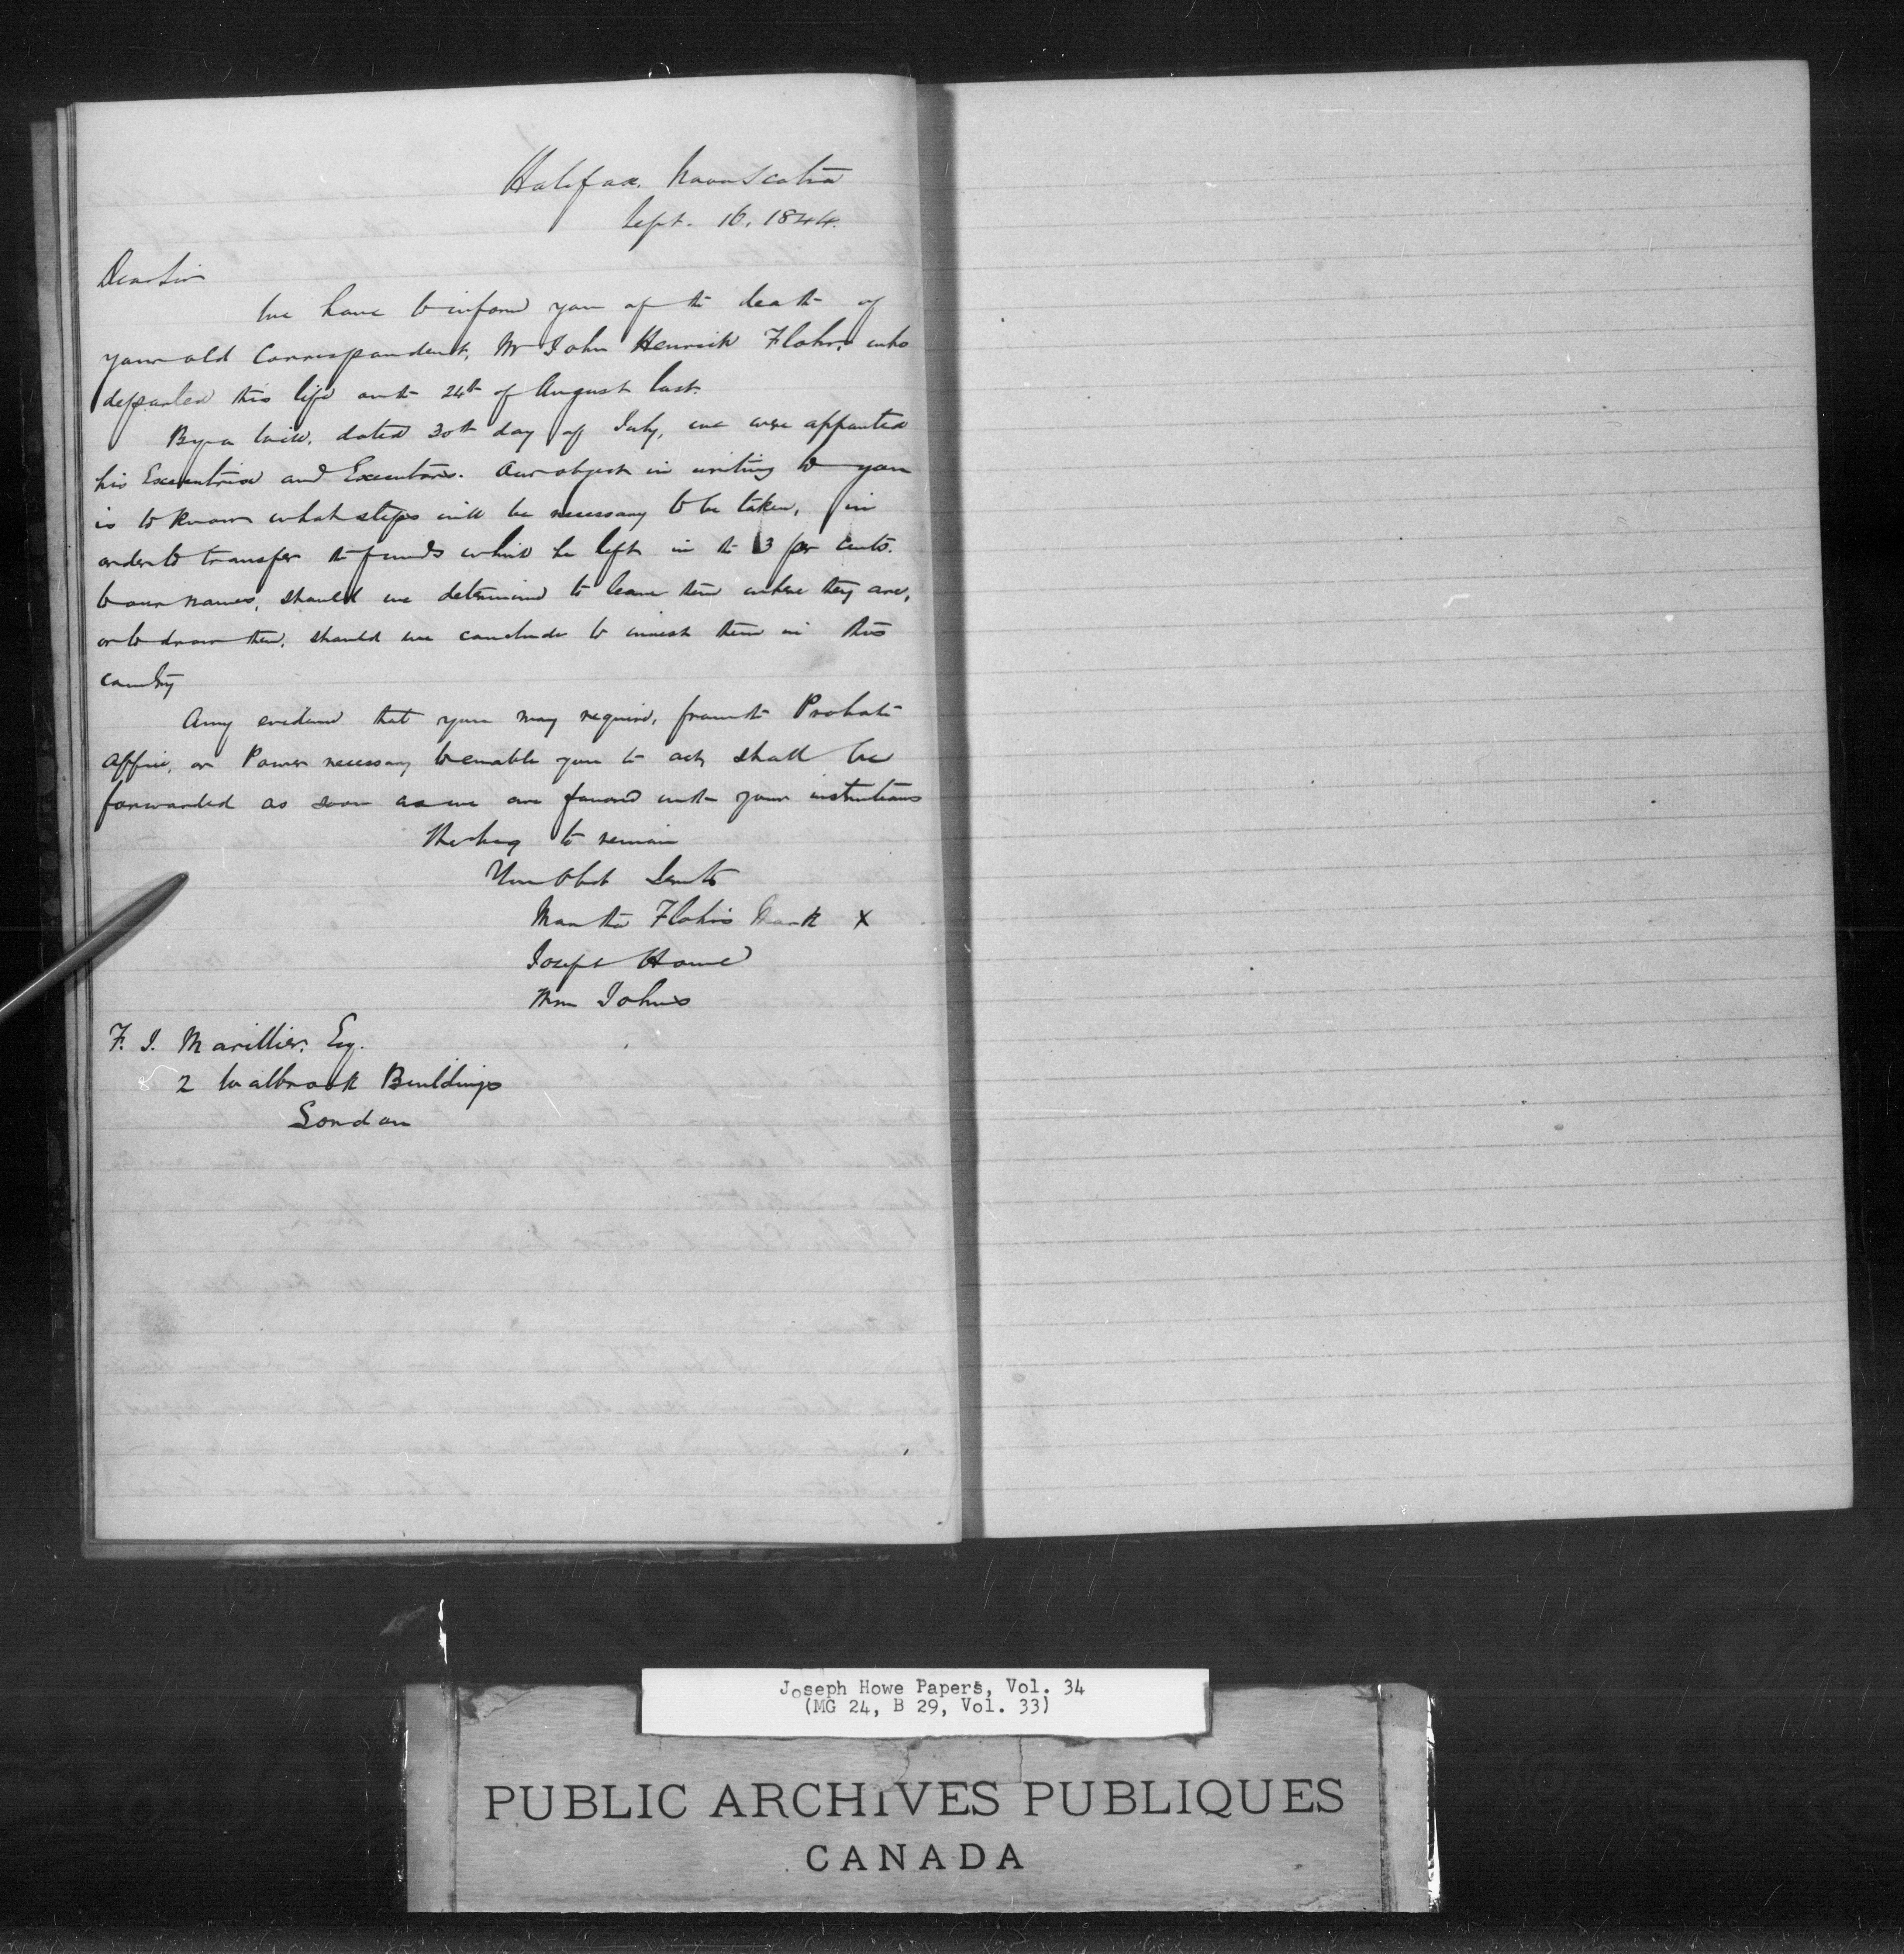 Halifax, Nova Scotia
Sept. 16, 1844.
Dear Sir
We have to inform you of the death of
your old Correspondent, Mr John Henrick Flohr, who
departed this life on the 24th of August last.
By a Will, dated 30th day of July, we were appointed
his Executrix and Executors. Our object in writing to you
is to know what steps will be necessary to be taken, in
order to transfer the funds which he left in the 3 per cents.
to our names, should we determine to leave them where they are,
or to draw them, should we conclude to invest them in this
country
Any evidence that you may require, from the Probate
Office, or Power necessary to enable you to act, shall be
forwarded as soon as we are favored with your instructions
We beg to remain
Your Obdt Servts
Martha Flohr's Mark X
Joseph Howe
Wm Johns
F. J. Marillier, Esq.
2 Walbrook Buildings
London
Joseph Howe Papers, Vol. 34
(MG 24, B 29, Vol. 33)
PUBLIC ARCHIVES PUBLIQUES
CANADA